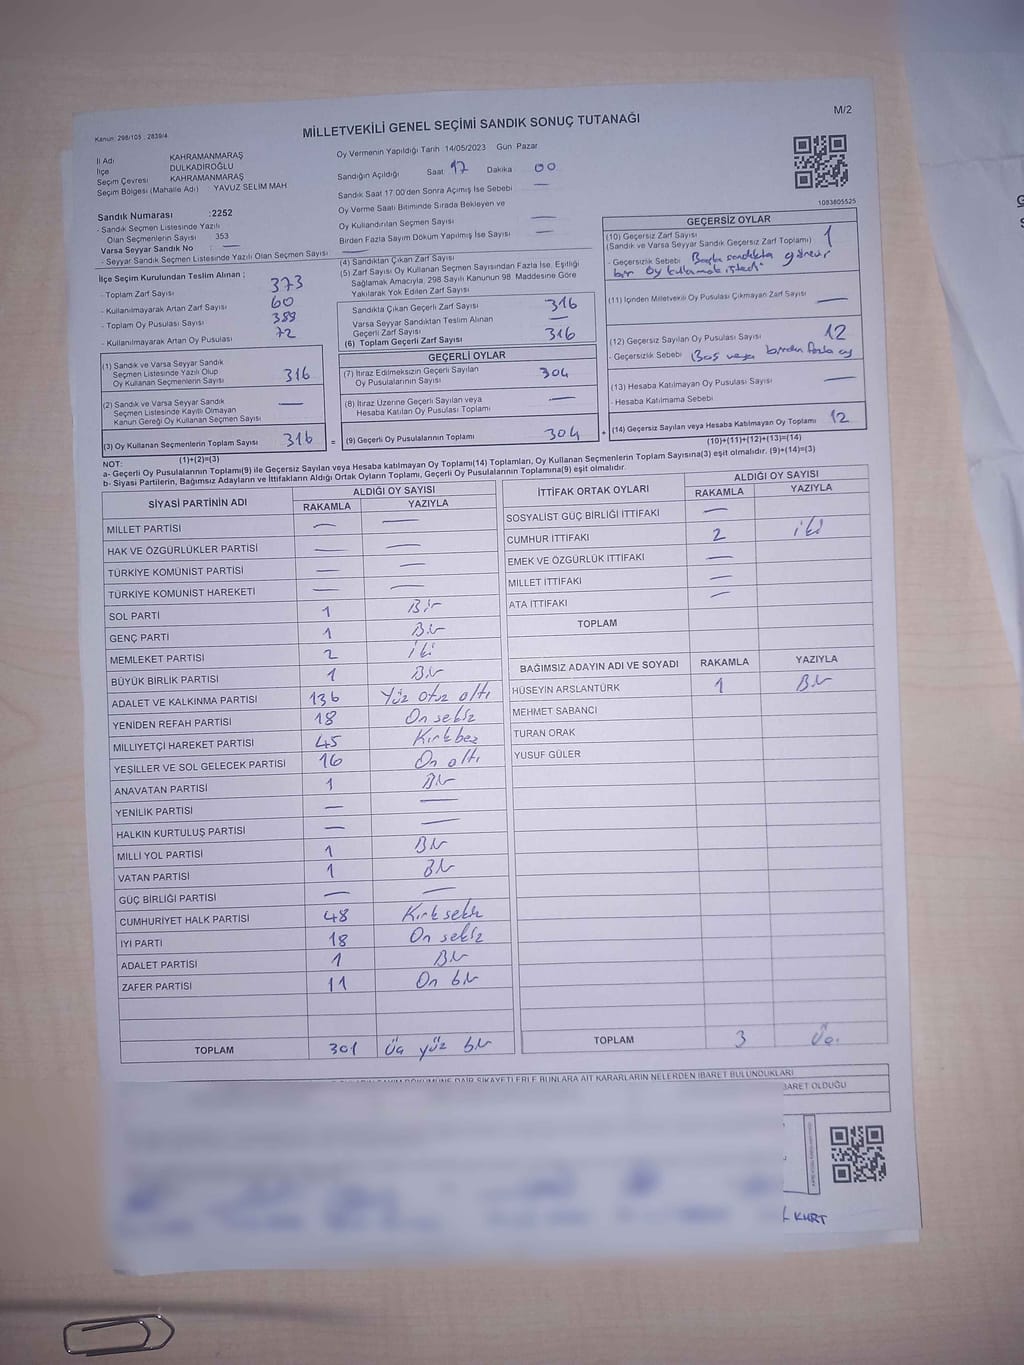 Kanun: 298/105 : 2839/4
MİLLETVEKİLİ GENEL SEÇİMİ SANDIK SONUÇ TUTANAĞI
M/2
İl Adı KAHRAMANMARAŞ
İlçe DULKADİROĞLU
Seçim Çevresi KAHRAMANMARAŞ
Seçim Bölgesi (Mahalle Adı) YAVUZ SELİM MAH
Oy Vermenin Yapıldığı Tarih 14/05/2023 Gün Pazar
Sandığın Açıldığı Saat 17 Dakika 00
Sandık Saat 17.00'den Sonra Açımış İse Sebebi —
Oy Verme Saati Bitiminde Sırada Bekleyen ve
Oy Kullandırılan Seçmen Sayısı —
Birden Fazla Sayım Döküm Yapılmış İse Sayısı —
1083805525
Sandık Numarası :2252
- Sandık Seçmen Listesinde Yazılı
Olan Seçmenlerin Sayısı 353
Varsa Seyyar Sandık No : —
- Seyyar Sandık Seçmen Listesinde Yazılı Olan Seçmen Sayısı —
İlçe Seçim Kurulundan Teslim Alınan ;
- Toplam Zarf Sayısı : 373
- Kullanılmayarak Artan Zarf Sayısı : 60
- Toplam Oy Pusulası Sayısı : 389
- Kullanılmayarak Artan Oy Pusulası : 72
(1) Sandık ve Varsa Seyyar Sandık
Seçmen Listesinde Yazılı Olup
Oy Kullanan Seçmenlerin Sayısı 316
(2) Sandık ve Varsa Seyyar Sandık
Seçmen Listesinde Kayıtlı Olmayan
Kanun Gereği Oy Kullanan Seçmen Sayısı —
(3) Oy Kullanan Seçmenlerin Toplam Sayısı 316 =
(1)+(2)=(3)
(4) Sandıktan Çıkan Zarf Sayısı
(5) Zarf Sayısı Oy Kullanan Seçmen Sayısından Fazla İse, Eşitliği
Sağlamak Amacıyla, 298 Sayılı Kanunun 98. Maddesine Göre
Yakılarak Yok Edilen Zarf Sayısı
Sandıkta Çıkan Geçerli Zarf Sayısı 316
Varsa Seyyar Sandıktan Teslim Alınan
Geçerli Zarf Sayısı —
(6) Toplam Geçerli Zarf Sayısı 316
GEÇERLİ OYLAR
(7) İtiraz Edilmeksizin Geçerli Sayılan
Oy Pusulalarının Sayısı 304
(8) İtiraz Üzerine Geçerli Sayılan veya
Hesaba Katılan Oy Pusulası Toplamı —
(9) Geçerli Oy Pusulalarının Toplamı 304 +
GEÇERSİZ OYLAR
(10) Geçersiz Zarf Sayısı
(Sandık ve Varsa Seyyar Sandık Geçersiz Zarf Toplamı) 1
- Geçersizlik Sebebi Başka sandıkta görevli
bir oy kullanmak istedi
(11) İçinden Milletvekili Oy Pusulası Çıkmayan Zarf Sayısı —
(12) Geçersiz Sayılan Oy Pusulası Sayısı 12
- Geçersizlik Sebebi Boş veya birden fazla oy
(13) Hesaba Katılmayan Oy Pusulası Sayısı —
- Hesaba Katılmama Sebebi
(14) Geçersiz Sayılan veya Hesaba Katılmayan Oy Toplamı 12
(10)+(11)+(12)+(13)=(14)
NOT:
a- Geçerli Oy Pusulalarının Toplamı(9) ile Geçersiz Sayılan veya Hesaba katılmayan Oy Toplamı(14) Toplamları, Oy Kullanan Seçmenlerin Toplam Sayısına(3) eşit olmalıdır. (9)+(14)=(3)
b- Siyasi Partilerin, Bağımsız Adayların ve İttifakların Aldığı Ortak Oyların Toplamı, Geçerli Oy Pusulalarının Toplamına(9) eşit olmalıdır.
SİYASİ PARTİNİN ADI ALDIĞI OY SAYISI
RAKAMLA YAZIYLA
MİLLET PARTİSİ — —
HAK VE ÖZGÜRLÜKLER PARTİSİ — —
TÜRKİYE KOMÜNİST PARTİSİ — —
TÜRKİYE KOMÜNİST HAREKETİ — —
SOL PARTİ 1 Bir
GENÇ PARTİ 1 Bir
MEMLEKET PARTİSİ 2 iki
BÜYÜK BİRLİK PARTİSİ 1 Bir
ADALET VE KALKINMA PARTİSİ 136 Yüz otuz altı
YENİDEN REFAH PARTİSİ 18 On sekiz
MİLLİYETÇİ HAREKET PARTİSİ 45 Kırk beş
YEŞİLLER VE SOL GELECEK PARTİSİ 16 On altı
ANAVATAN PARTİSİ 1 Bir
YENİLİK PARTİSİ — —
HALKIN KURTULUŞ PARTİSİ — —
MİLLİ YOL PARTİSİ 1 Bir
VATAN PARTİSİ 1 Bir
GÜÇ BİRLİĞİ PARTİSİ — —
CUMHURİYET HALK PARTİSİ 48 Kırk sekiz
İYİ PARTİ 18 On sekiz
ADALET PARTİSİ 1 Bir
ZAFER PARTİSİ 11 On bir
TOPLAM 301 Üç yüz bir
İTTİFAK ORTAK OYLARI ALDIĞI OY SAYISI
RAKAMLA YAZIYLA
SOSYALİST GÜÇ BİRLİĞİ İTTİFAKI —
CUMHUR İTTİFAKI 2 iki
EMEK VE ÖZGÜRLÜK İTTİFAKI —
MİLLET İTTİFAKI —
ATA İTTİFAKI —
TOPLAM
BAĞIMSIZ ADAYIN ADI VE SOYADI RAKAMLA YAZIYLA
HÜSEYİN ARSLANTÜRK 1 Bir
MEHMET SABANCI
TURAN ORAK
YUSUF GÜLER
TOPLAM 3 Üç.
DÖKÜMÜNE DAİR ŞİKAYETLERLE BUNLARA AİT KARARLARIN NELERDEN İBARET BULUNDUKLARI
BARET OLDUĞU
KURT